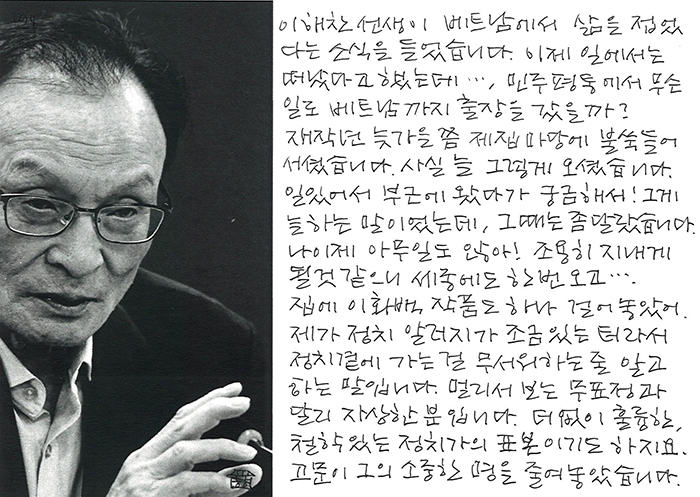 이해찬 선생이 베트남에서 삶을 접었
다는 소식을 들었습니다. 이제 일에서는
떠났다고 했는데 …, 민주평통에서 무슨
일로 베트남까지 출장을 갔을까?
재작년 늦가을쯤 제집 마당에 불쑥 들어
서셨습니다. 사실 늘 그렇게 오셨습니다.
일있어서 부근에 왔다가 궁금해서! 그게
늘하는 말이었는데, 그때는 좀 달랐습니다.
나이제 아무일도 않아! 조용히 지내게
될것 같으니 세종에도 한번 오고….
집에 이화백 작품도 하나 걸어 놓았어.
제가 정치 알러지가 조금 있는 터라서
정치곁에 가는걸 무서워하는 줄 알고
하는 말입니다. 멀리서 보는 무표정과
달리 자상한 분입니다. 더없이 훌륭한,
철학있는 정치가의 표본이기도 하지요.
고문이 그의 소중한 명을 줄여놓았습니다.